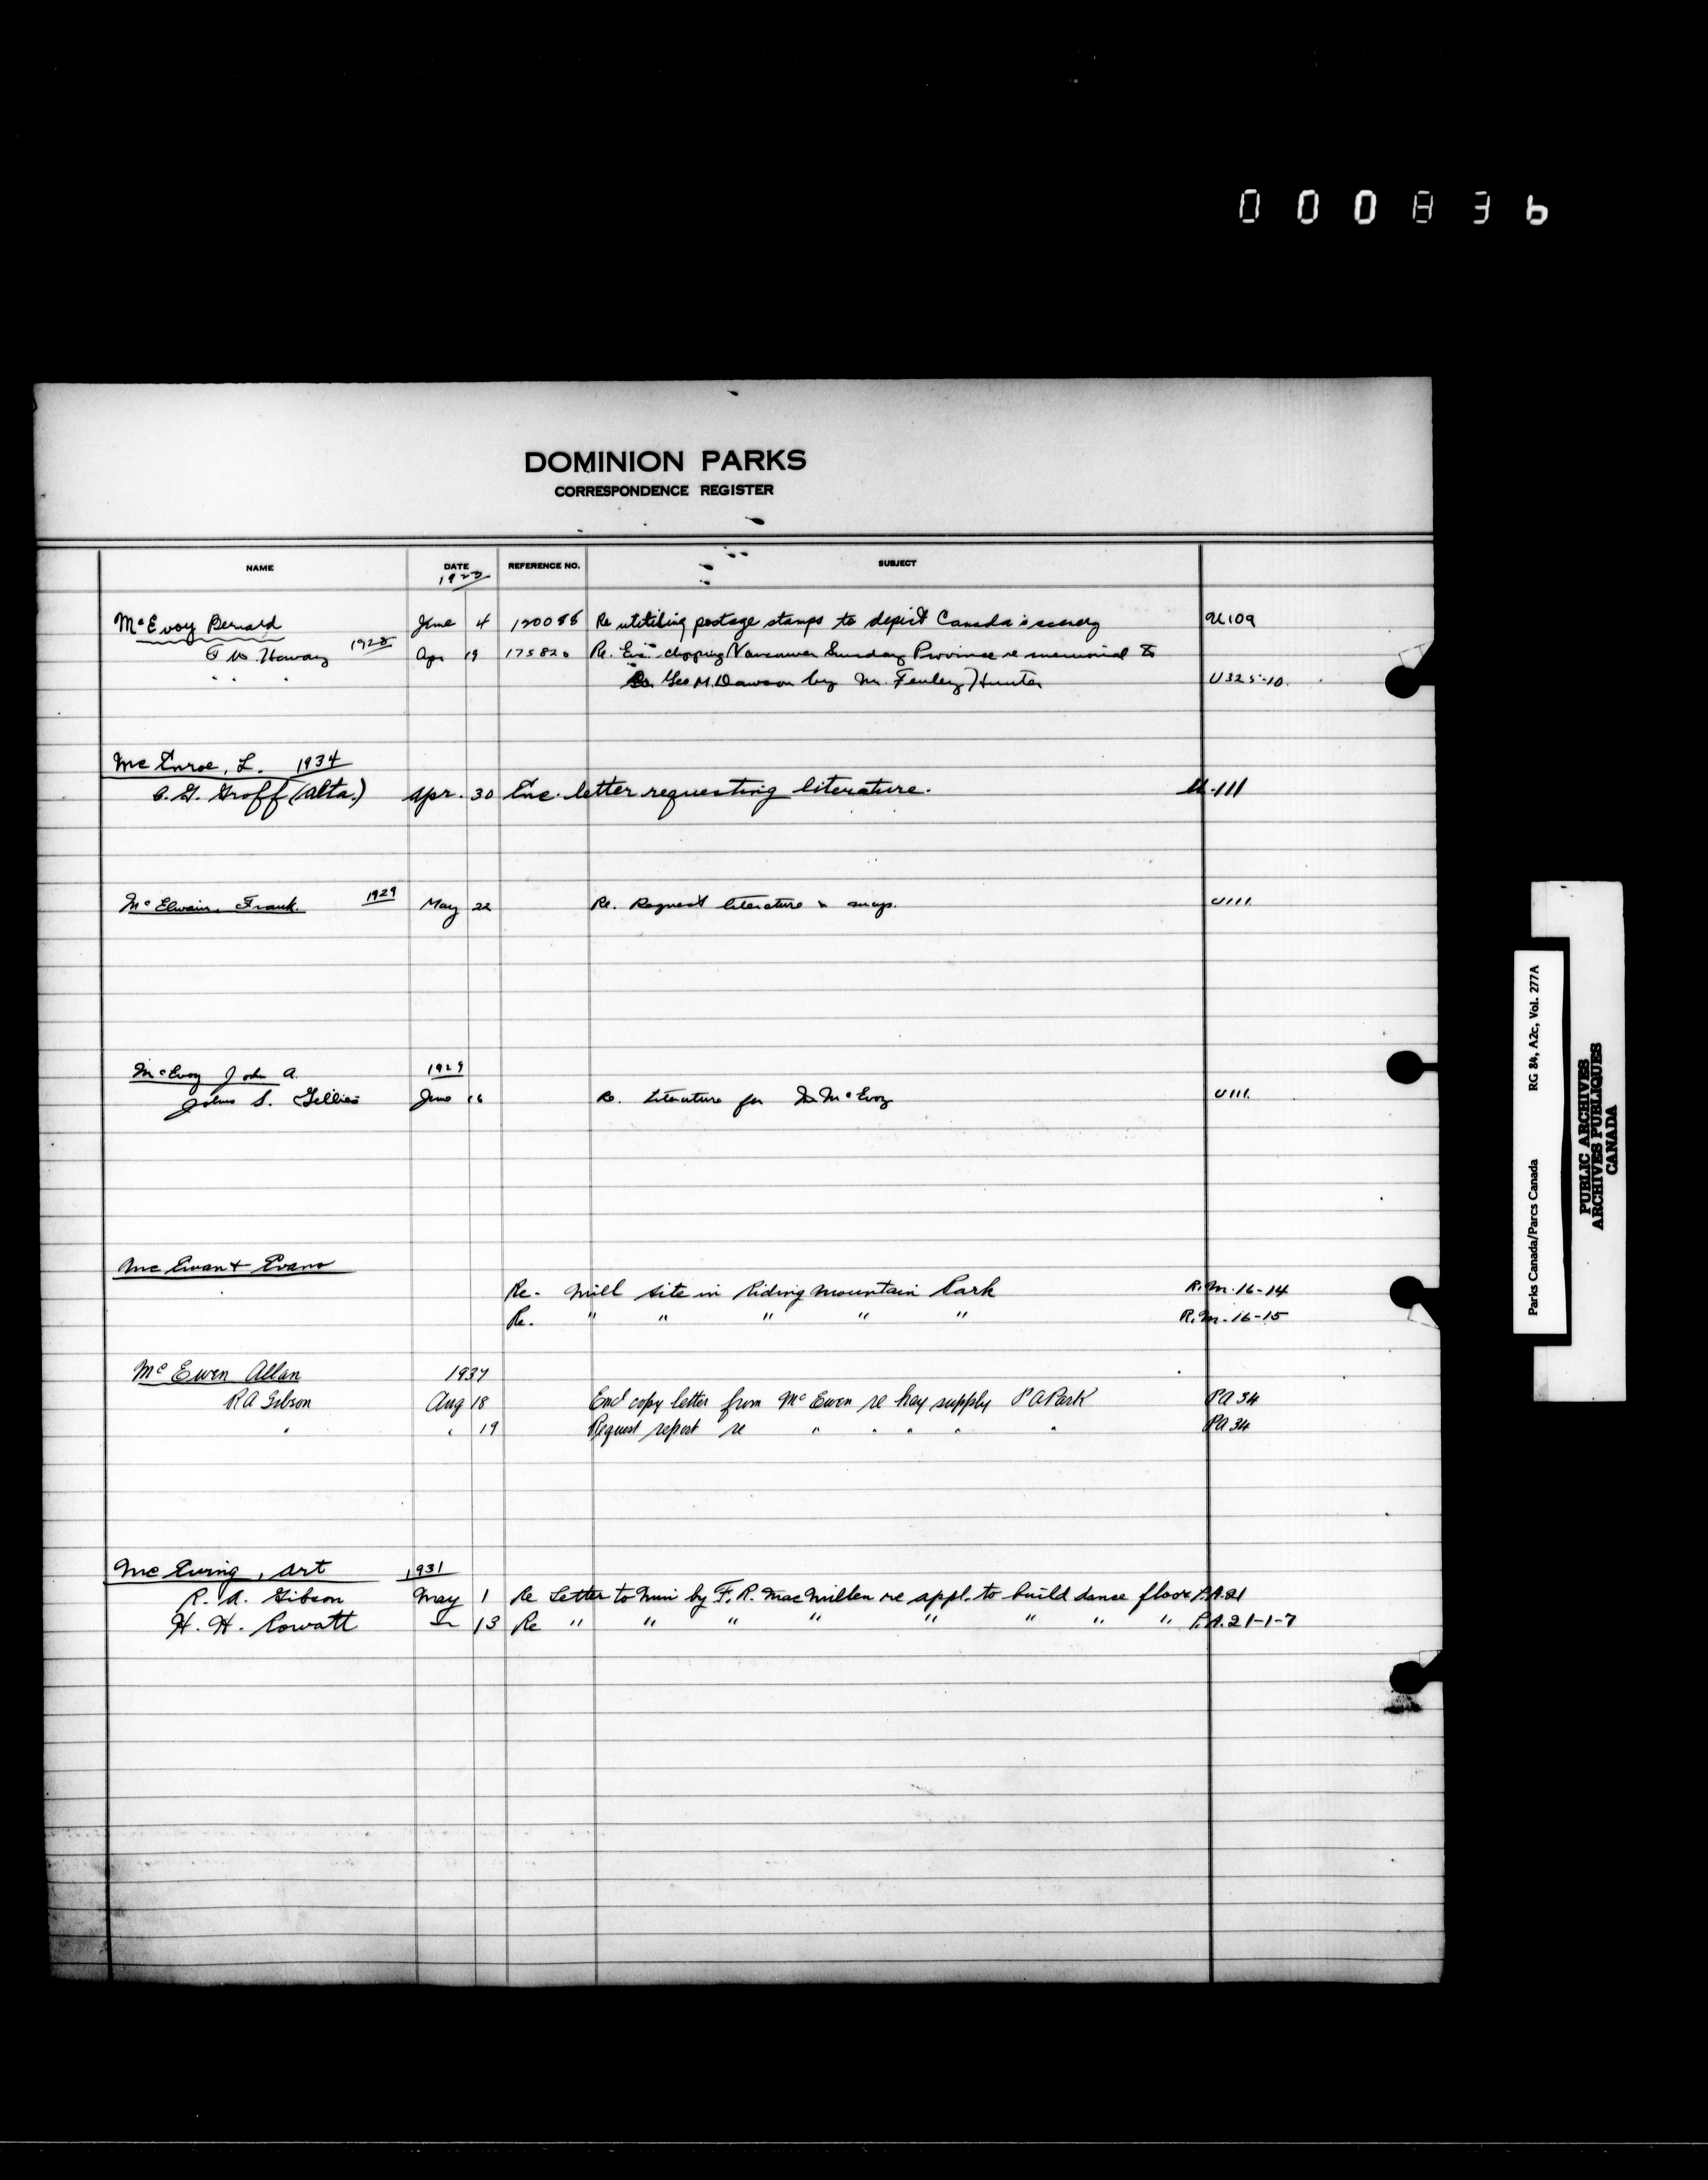 000836
DOMINION PARKS
CORRESPONDENCE REGISTER
NAME DATE REFERENCE NO. SUBJECT
1923
McEvoy Bernard June 4 120088 Re utilizing postage stamps to depict Canada's scenery U109
F W Howay 1928 Apr 19 175820 Re. Enc. clipping Vancouver Sunday Province re memorial to
" " " Dr. Geo M. Dawson by Mr. Fenley Hunter U325-10.
McEnroe, L. 1934
C. G. Groff (Alta.) Apr. 30 Enc. letter requesting literature. U-111
McElwain, Frank. 1929 May 22 Re. Request literature & map. U111.
McEvoy John A. 1929
Johns S. Gillies June 16 Re. Literature for Mr McEvoy U111.
McEwan & Evans
Re- Mill site in Riding Mountain Park R.M.16-14
Re. " " " " " R.M.-16-15
McEwen Allan 1937
R A Gibson Aug 18 Encl copy letter from McEwen re hay supply P A Park PA 34
" " 19 Request report re " " " " " PA 34
McEwing, Art 1931
R. A. Gibson May 1 Re Letter to Min by F. R. MacMillan re appl. to build dance floor P.A.21
H. H. Rowatt 13 Re " " " " " " " " P.A.21-1-7
Parks Canada/Parcs Canada RG 84, A2c, Vol. 277A
PUBLIC ARCHIVES
ARCHIVES PUBLIQUES
CANADA